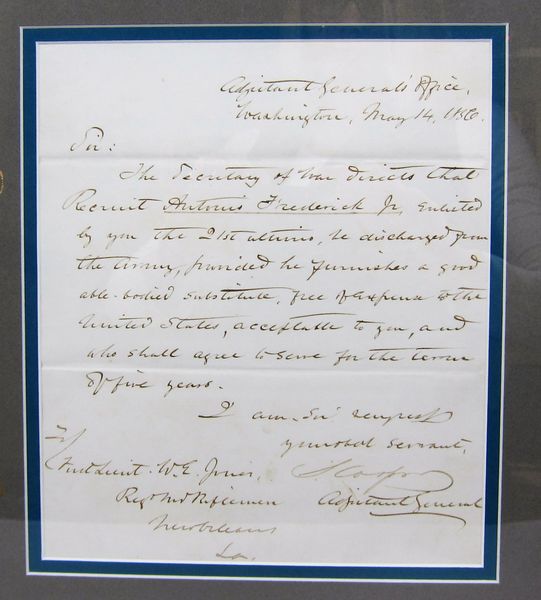 Adjutant General's Office,
Washington, May 14, 1856.
Sir:
The Secretary of War directs that
Recruit Antonio Frederick Jr, enlisted
by you the 21st ultimo, be discharged from
the Army, provided he furnishes a good
able-bodied substitute, free of expense to the
United States, acceptable to you, and
who shall agree to serve for the term
of five years.
I am Sir
your obdt servant,
S. Cooper
Adjutant General
First Lieut. W. E. Jones,
Regt Mtd Riflemen
New Orleans
La.